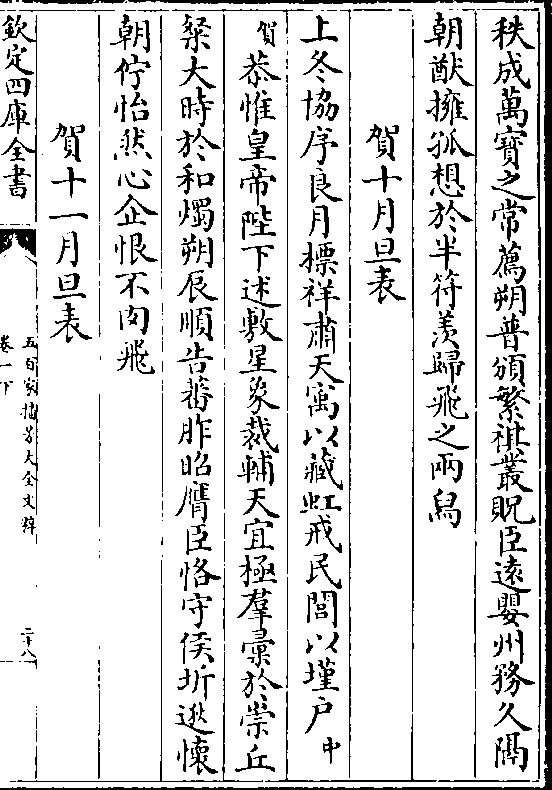 秩成萬寶之常薦朔普頒繁祺叢貺臣遠嬰州務久隔
朝猷擁孤想於半符羨歸飛之兩舄
賀十月旦表
上冬協序良月標祥肅天㝢以藏虹戒民閭以墐户中
賀恭惟皇帝陛下述敷星象裁輔天宜極羣彚於崇丘
粲大時於和燭朔辰順告蕃胙昭膺臣恪守侯圻逖懐
朝佇怡然心企恨不肉飛
賀十一月旦表
欽定四庫全書
五百家播芳大全文粹
卷一下
二十八